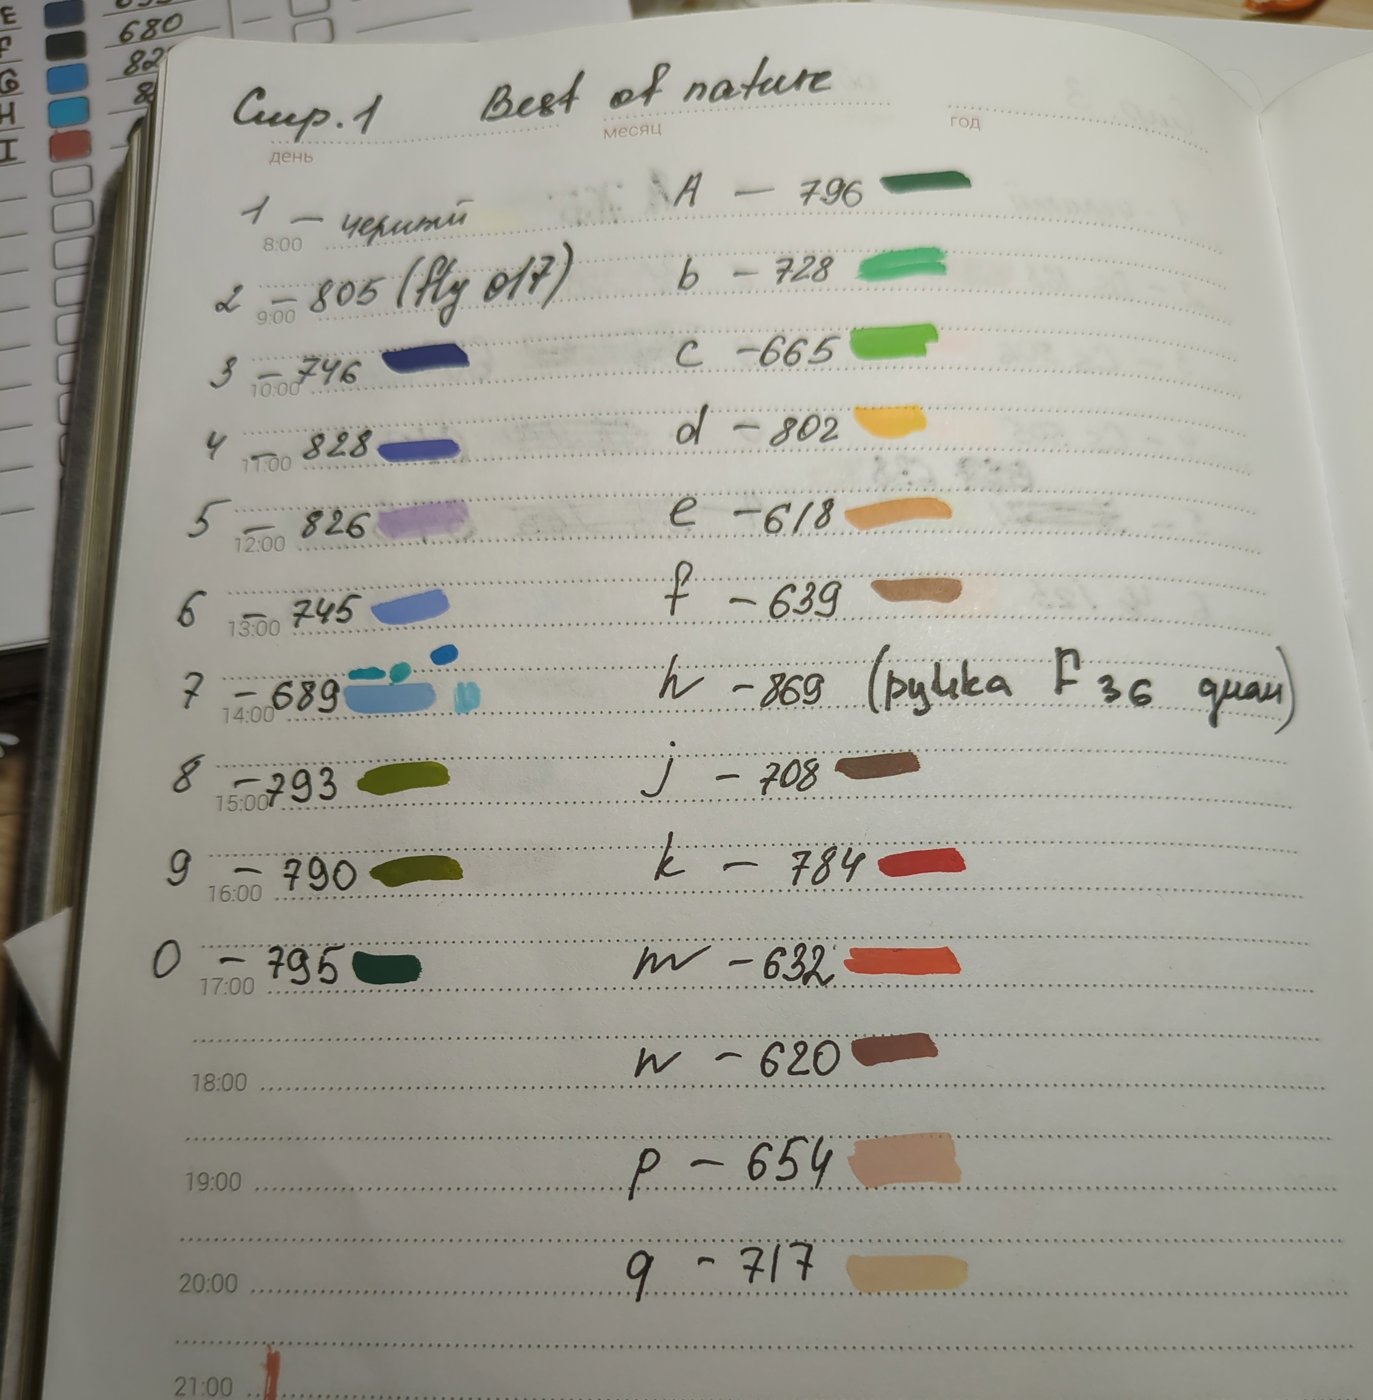 E
F 680
G 82
H 8
I
Стр. 1 Best of nature
день месяц год
1 – черный A – 796
8:00
2 – 805 (fly 017) b – 728
9:00
3 – 746 c – 665
10:00
4 – 828 d – 802
11:00
5 – 826 e – 618
12:00
6 – 745 f – 639
13:00
7 – 689 h – 869 (ручка F 36 джам)
14:00
8 – 793 j – 708
15:00
9 – 790 k – 784
16:00
0 – 795 m – 632
17:00
n – 620
18:00
p – 654
19:00
q – 717
20:00
21:00